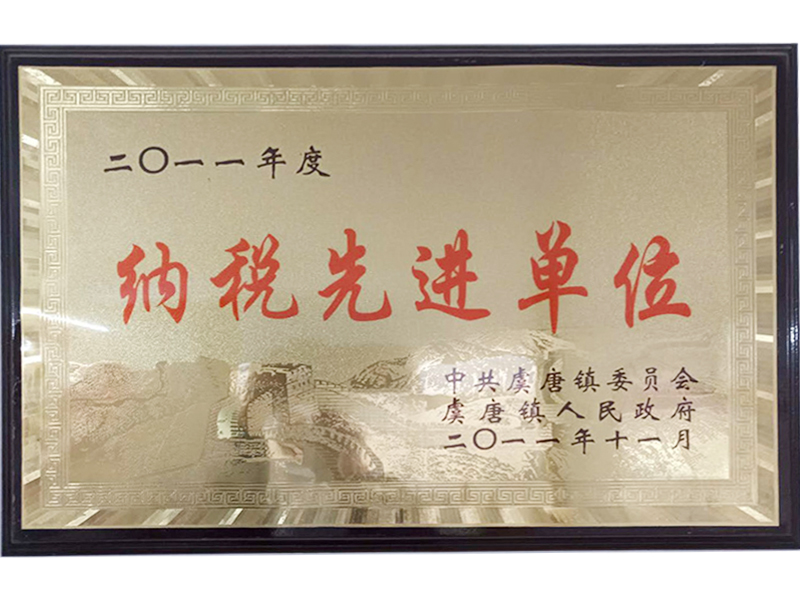 二〇一一年度
纳税先进单位
中共虞唐镇委员会
虞唐镇人民政府
二〇一一年十一月